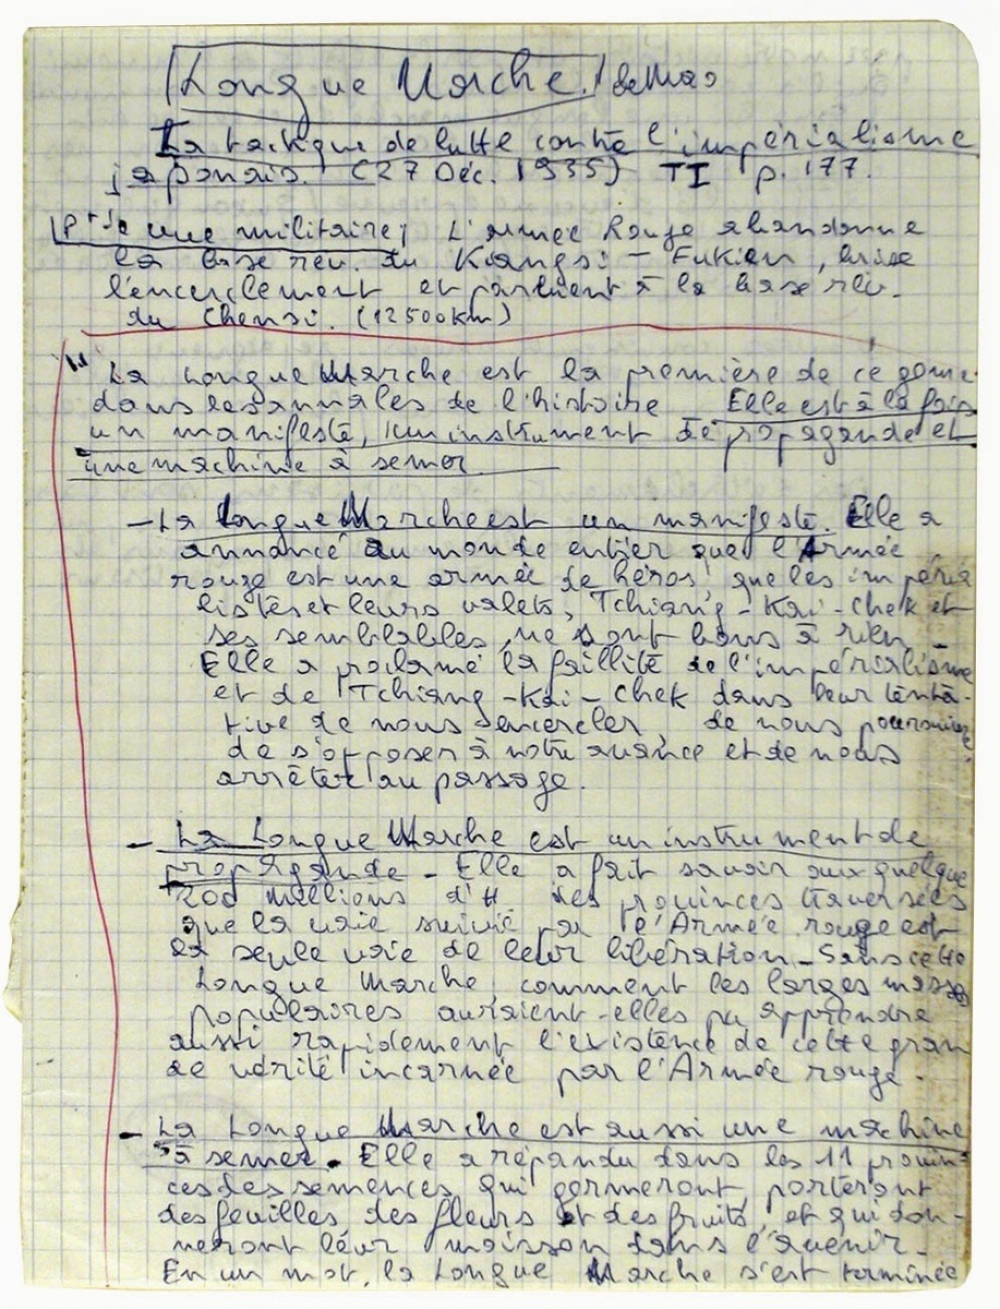 Longue Marche. / de Mao
La tactique de lutte contre l'impérialisme
japonais. (27 Déc. 1935) TI p. 177.
Pt de vue militaire; L'armée Rouge abandonne
la base rév. du Kiangsi - Fukien, brise
l'encerclement et parvient à la base rév.
du Chensi. (12500km)
" La Longue Marche est la première de ce genre
dans les annales de l'histoire Elle est à la fois
un manifeste, un instrument de propagande et
une machine à semer.
- La Longue Marche est un manifeste. Elle a
annoncé au monde entier que l'Armée
rouge est une armée de héros, que les impéria
listes et leurs valets, Tchiang-Kai-Chek et
ses semblables, ne sont bons à rien -
Elle a proclamé la faillite de l'impérialisme
et de Tchiang-Kai-Chek dans leur tenta-
tive de nous encercler, de nous poursuivre,
de s'opposer à notre avance et de nous
arrêter au passage.
- La Longue Marche est un instrument de
propagande - Elle a fait savoir aux quelque
200 millions d'H. des provinces traversées
que la voie suivie par l'Armée rouge est
la seule voie de leur libération - Sans cette
Longue Marche, comment les larges masses
populaires auraient-elles pu apprendre
aussi rapidement l'existence de cette gran
de vérité incarnée par l'Armée rouge.
- La Longue Marche est aussi une machine
à semer. Elle a répandu dans les 11 provin-
ces des semences qui germeront, porteront
des feuilles, des fleurs et des fruits, et qui don-
neront leur moisson dans l'avenir.
En un mot, la Longue Marche s'est terminée